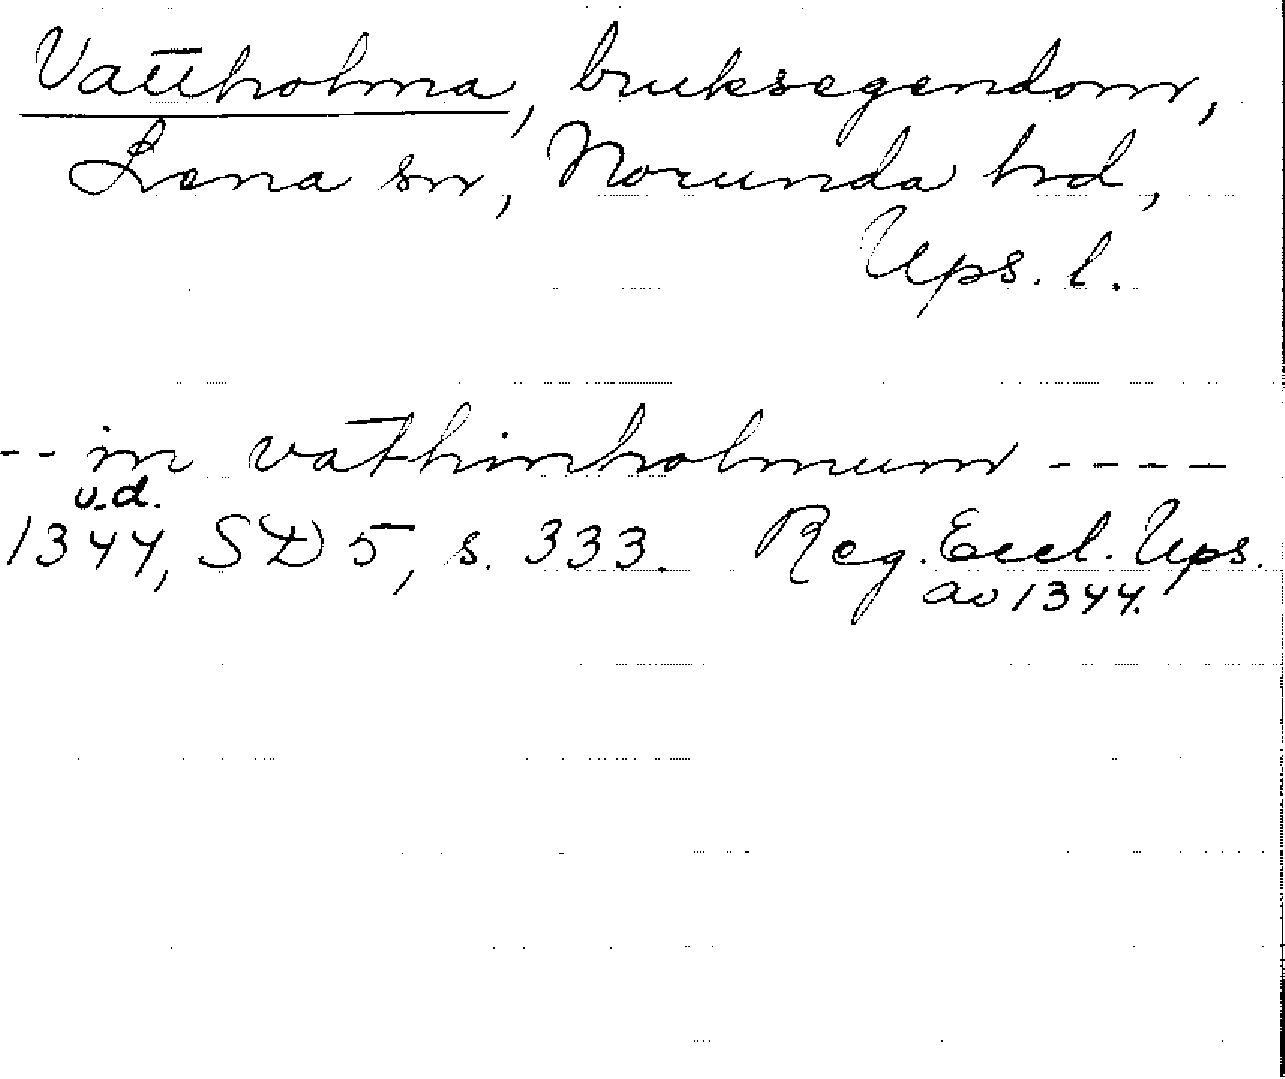 Vattholma, bruksegendom,
Lena sn, Norunda hd,
Ups. l.
-- in vathinholmum ----
u.d.
1344, SD 5, s. 333. Reg. Eccl. Ups.
av 1344.